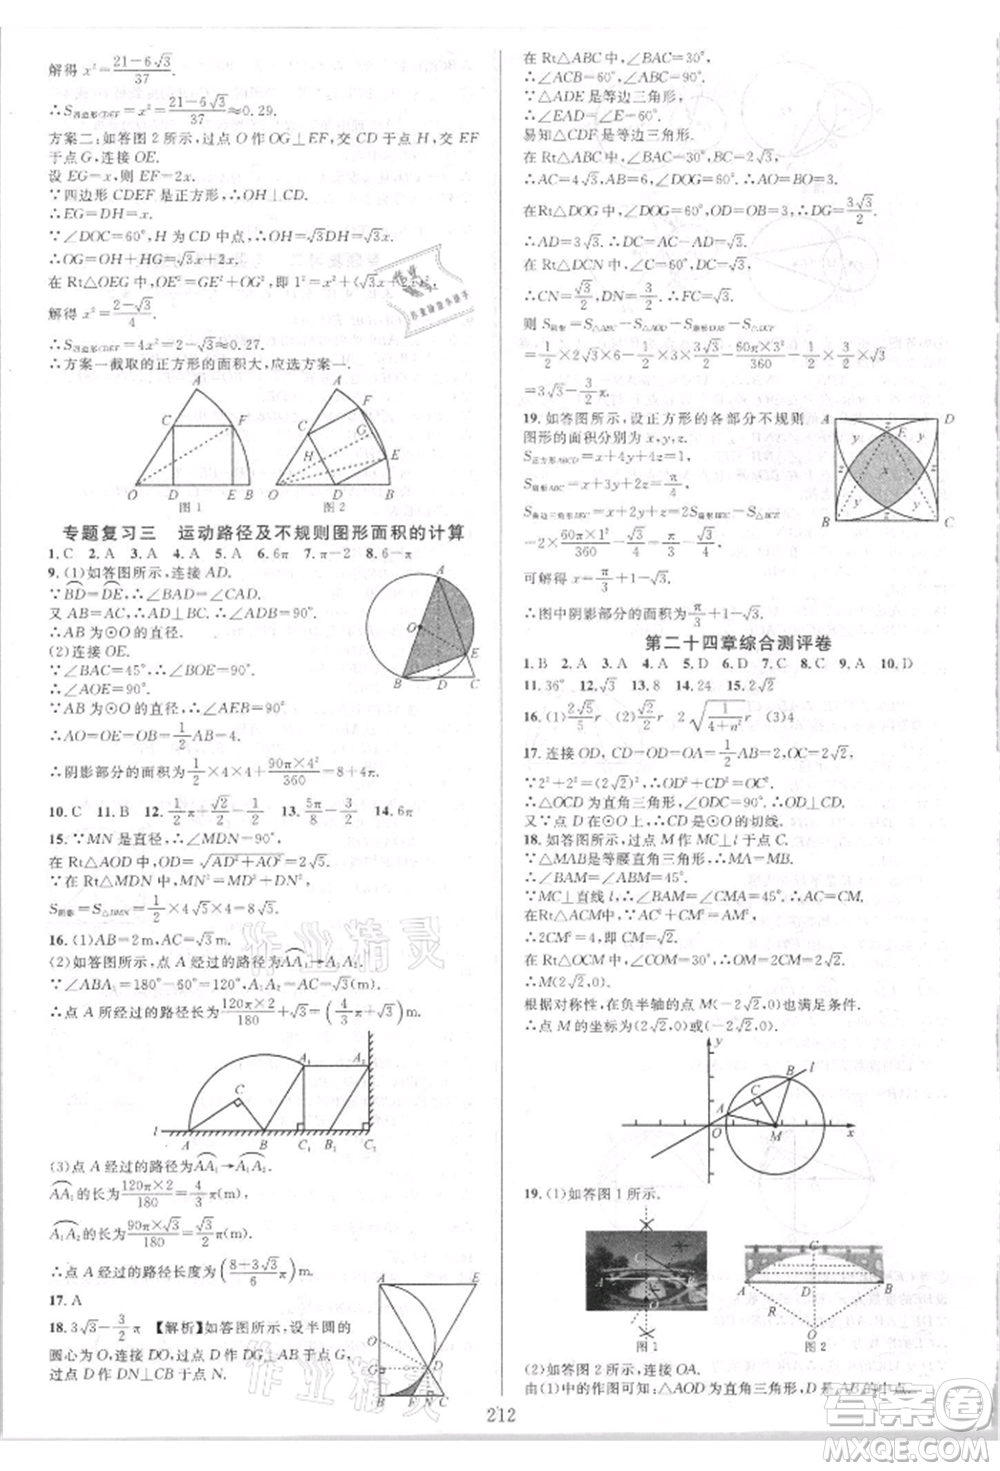 解得 x²=(21-6√3)/37.
∴S四边形CDEF=x²=(21-6√3)/37≈0.29.
方案二:如答图 2 所示,过点 O 作 OG⊥EF,交 CD 于点 H,交 EF
于点 G,连接 OE.
设 EG=x,则 EF=2x.
∵四边形 CDEF 是正方形,∴OH⊥CD.
∴EG=DH=x.
∵∠DOC=60°,H 为 CD 中点,∴OH=√3DH=√3x.
∴OG=OH+HG=√3x+2x.
在 Rt△OEG 中,OE²=EG²+OG²,即 1²=x²+(√3x+2x)².
解得 x²=(2-√3)/4.
∴S四边形CDEF=4x²=2-√3≈0.27.
∴方案一截取的正方形的面积大,应选方案一.
A C F O D E B 图 1
A F C G H E O D B 图 2
专题复习三 运动路径及不规则图形面积的计算
1. C 2. A 3. A 4. A 5. A 6. 6π 7. π-2 8. 6-π
9. (1)如答图所示,连接 AD.
∵BD=DE,∴∠BAD=∠CAD.
又 AB=AC,∴AD⊥BC,∴∠ADB=90°.
∴AB 为⊙O 的直径.
(2)连接 OE.
∵∠BAC=45°,∴∠BOE=90°.
∴∠AOE=90°.
∵AB 为⊙O 的直径,∴∠AEB=90°.
∴AO=OE=OB=1/2AB=4.
∴阴影部分的面积为1/2×4×4+(90π×4²)/360=8+4π.
A O E B D C
10. C 11. B 12. 1/2π+√2/2-1/2 13. 5π/8-3/2 14. 6π
15. ∵MN 是直径,∴∠MDN=90°.
在 Rt△AOD 中,OD=√(AD²+AO²)=2√5.
∵在 Rt△MDN 中,MN=2OD=4√5,
S阴影=S△BMN=1/2×4√5×4=8√5.
16. (1)AB=2 m,AC=√3 m.
(2)如答图所示,点 A 经过的路径为AA₁→A₁A₂.
∵∠ABA₁=180°-60°=120°,A₁A₂=AC=√3(m)
∴点 A 所经过的路径长为(120π×2)/180+√3=(4/3π+√3) m.
A₁ A₂ C l A B C₁ B₂ C₂
(3)点 A 经过的路径为AA₁→A₁A₂.
AA₁的长为(120π×2)/180=4/3π(m)
A₁A₂的长为(90π×√3)/180=√3/2π(m),
∴点 A 经过的路径长度为((8+3√3)/6)π(m).
17. A
18. 3√3-3/2π 【解析】如答图所示,设半圆的
圆心为 O,连接 DO,过点 D 作 DG⊥AB 于
点 G,过点 D 作 DN⊥CB 于点 N.
A E O D G B F N C
在 Rt△ABC 中,∠BAC=30°
∴∠ACB=60°,∠ABC=90°.
∵△ADE 是等边三角形,
∴∠EAD=∠E=60°.
易知△CDF 是等边三角形.
在 Rt△ABC 中,∠BAC=30°,BC=2√3,
∴AC=4√3,AB=6,∴AO=BO=3.
在Rt△DOG 中,∠DOG=60°,OD=OB=3,∴DG=3√3/2.
∴AD=3√3,∴DC=AC-AD=√3.
在 Rt△DCN 中,∠C=60°,
∴CN=√3/2,DN=3/2,FC=√3.
则 S阴影=S△ABC-S△AOD-S扇形DOB-S△DCF
=1/2×2√3×6-1/2×3×3√3/2-(60π×3²)/360-1/2×3/2×√3
=3√3-3/2π.
19. 如答图所示,设正方形的各部分不规则
图形的面积分别为 x,y,z.
S正方形ABCD=x+4y+4z=1,
S扇形ABC=x+3y+2z=π/4,
S曲边三角形EBC=x+2y+z
=2×(60π×1²)/360-√3/4=π/3-√3/4.
可解得 x=π/3+1-√3.
∴图中阴影部分的面积为π/3+1-√3.
A D E z y x B C
第二十四章综合测评卷
1. B 2. A 3. A 4. A 5. D 6. D 7. C 8. C 9. A 10. D
11. 36° 12. √3 13. 8 14. 24 15. 2√2
16. (1)2√5/5r (2)√2/2r 2√(1/(4+n²))r (3)4
17. 连接 OD,CD=OD=OA=1/2AB=2,OC=2√2.
∵2²+2²=(2√2)²,∴OD²+CD²=OC².
∴△OCD 为直角三角形,∴∠ODC=90°.
又∵点 D 在⊙O上,∴CD 是⊙O 的切线.
18. 如答图所示,过点 M 作 MC⊥l 于点 C.
∵△MAB是等腰直角三角形,∴MA=MB.
∴∠BAM=∠ABM=45°.
∵MC⊥直线 l,∴∠BAM=∠CMA=45°,∴AC=CM.
在Rt△ACM 中,∵AC²+CM²=AM²,
∴2CM²=4,∴CM=√2.
在 Rt△OCM 中,∠COM=30°,∴OM=2CM=2√2,
∴M(2√2,0).
根据对称性,在负半轴的点 M(-2√2,0)也满足条件.
∴点 M 的坐标为(2√2,0)或(-2√2,0).
y B l C A O M x
19. (1)如答图 1 所示.
图 1
C A D B R r O 图 2
(2)如答图 2 所示,连接 OA.
由(1)中的作图可知:△AOD 为直角三角形,D 是 AB 的中点,
212
作业精灵
答案圈
MXQE.COM